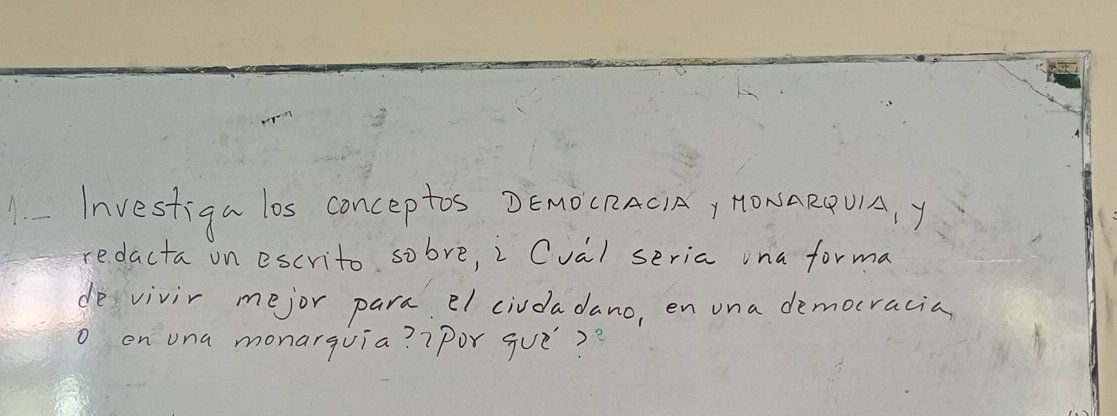 1.- Investiga los conceptos DEMOCRACIA y MONARQUIA, y
redacta un escrito sobre, ¿ Cuál seria una forma
de vivir mejor para el ciudadano, en una democracia
o en una monarquía? ¿Por qué?